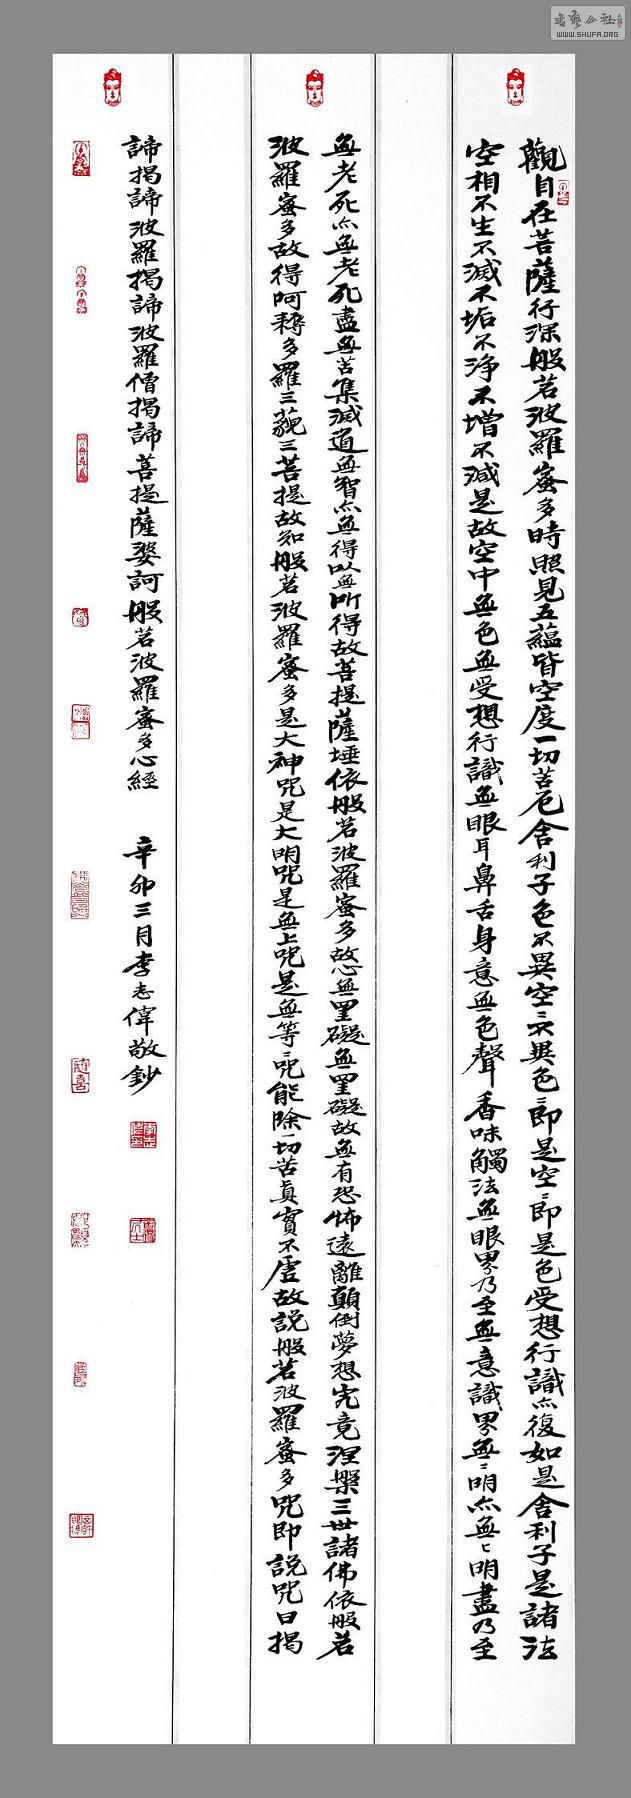 書藝公社
WWW.SHUFA.ORG
觀自在菩薩行深般若波羅蜜多時照見五蘊皆空度一切苦厄舍利子色不異空〻不異色〻即是空〻即是色受想行識亦復如是舍利子是諸法
空相不生不滅不垢不淨不增不減是故空中無色無受想行識無眼耳鼻舌身意無色聲香味觸法無眼界乃至無意識界無〻明亦無〻明盡乃至
無老死亦無老死盡無苦集滅道無智亦無得以無所得故菩提薩埵依般若波羅蜜多故心無罣礙無罣礙故無有恐怖遠離顛倒夢想究竟涅槃三世諸佛依般若
波羅蜜多故得阿耨多羅三藐三菩提故知般若波羅蜜多是大神咒是大明咒是無上咒是無等〻咒能除一切苦真實不虛故說般若波羅蜜多咒即說咒曰揭
諦揭諦波羅揭諦波羅僧揭諦菩提薩婆訶般若波羅蜜多心經 辛卯三月李志偉敬鈔